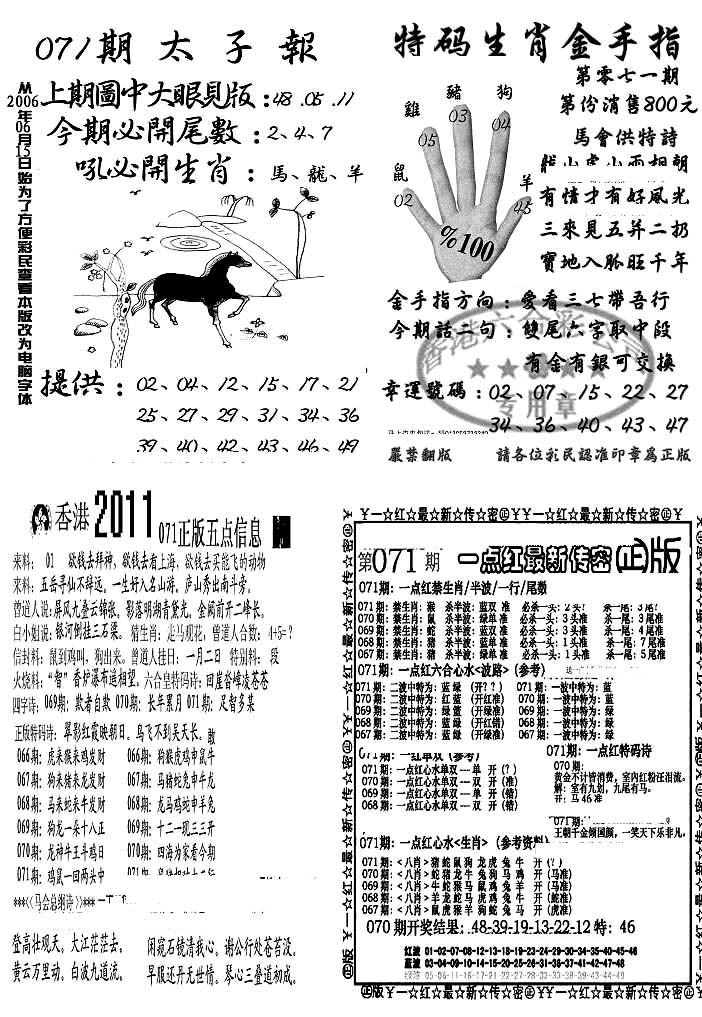 071期太子報
从2006年06月15日始为了方便彩民查看本版改为电脑字体
上期圖中大眼見版：48.05.11
今期必開尾數：2、4、7
吼必開生肖：馬、龍、羊
提供：02、04、12、15、17、21
25、27、29、31、34、36
39、40、42、43、46、49
特码生肖金手指
第零七一期
第份消售800元
馬會供特詩
有情才有好風光
三來見五并二扔
寶地入脈旺千年
雞 豬 狗
鼠 羊
05 03 04
02 45
%100
金手指方向：愛看三七帶吾行
今期話二句：雙尾六字取中段
有金有銀可交換
香港六合彩公司
专用章
幸運號碼：02、07、15、22、27
34、36、40、43、47
嚴禁翻版 請各位彩民認准印章為正版
香港2011 071正版五点信息
来料：01 欲钱去拜神，欲钱去看上海，欲钱去买能飞的动物
来料：五岳寻仙不辞远。一生好入名山游。庐山秀出南斗旁。
曾道人说：屏风九叠云锦张。影落明湖青黛光。金阙前开二峰长。
白小姐说：银河倒挂三石梁。 猜生肖：走马观花，曾道人合数：4+5=?
信封料：鼠到鸡叫、狗出来。曾道人挂日：一月二日 特别料：段
火烧料："智"香炉瀑布遥相望。六合皇特码诗：回崖沓嶂凌苍苍
四字诗：069期：欺者自欺 070期：长年累月 071期：足智多某
正版特码诗：翠影红霞映朝日。鸟飞不到吴天长。敢
066期：虎来猴来鸡发财 066期：狗猴虎鸡申鼠牛
067期：狗来猪来龙发财 067期：马猪蛇兔申牛龙
068期：马来蛇来牛发财 068期：龙马鸡蛇申羊兔
069期：狗龙一朵十八正 069期：十二一现三三开
070期：龙神牛王斗鸡日 070期：四海为家看今期
071期：鸡鼠一回两头中
***<<马会总纲诗>>***
登高壮观天。大江茫茫去， 闲窥石镜清我心。谢公行处苍苔没。
黄云万里动。白波九道流。 早服还丹无世情。琴心三叠道初成。
¥一☆红☆最☆新☆传☆密㊣¥
第071期 一点红最新传密 正版
071期：一点红禁生肖/半波/一行/尾数
071期：禁生肖：猴 杀半波：蓝双 准 必杀一头：2 头? 杀一尾：3 尾?
070期：禁生肖：鼠 杀半波：绿单 准 必杀一头：3 头准 杀一尾：3 尾准
069期：禁生肖：蛇 杀半波：绿双 准 必杀一头：3 头准 杀一尾：4 尾准
068期：禁生肖：猪 杀半波：蓝单 准 必杀一头：1 头准 杀一尾：7 尾准
067期：禁生肖：猪 杀半波：绿单 准 必杀一头：1 头准 杀一尾：5 尾准
071期：一点红六合心水<波路>（参考）
071期：二波中特为：蓝 绿 （开??） 071期：一波中特为：蓝
070期：二波中特为：红 蓝 （开红准） 070期：一波中特为：蓝
069期：二波中特为：绿 蓝 （开绿准） 069期：一波中特为：绿
068期：二波中特为：蓝 绿 （开红错） 068期：一波中特为：绿
067期：二波中特为：蓝 绿 （开绿准） 067期：一波中特为：绿
071期：一红单双（参考）
071期：一点红心水单双---单 开（?）
070期：一点红心水单双---双 开（准）
069期：一点红心水单双---单 开（错）
068期：一点红心水单双---双 开（错）
071期：一点红特码诗
070期：
黄金不计皆消费，室内红粉汪泪流。
解：室有九划，九尾有马。
开：马46准
071期：
王朝千金倾国颜，一笑天下乐非凡。
071期：一点红心水<生肖>（参考资料）
071期：<八肖>猪蛇鼠狗龙虎兔牛 开（?）
070期：<八肖>蛇猪龙牛兔狗马鸡 开（马准）
069期：<八肖>牛蛇猴马鼠鸡兔羊 开（马准）
068期：<八肖>马虎龙鸡兔蛇羊牛 开（蛇准）
067期：<八肖>鼠虎猴羊狗蛇兔马 开（虎准）
070期开奖结果：48-39-19-13-22-12 特：46
红波 01-02-07-08-12-13-18-19-23-24-29-30-34-35-40-45-46
蓝波 03-04-09-10-14-15-20-25-26-31-36-37-41-42-47-48
绿波 05-06-11-16-17-21-22-27-28-32-33-38-39-43-44-49
㊣版¥一☆红☆最☆新☆传☆密㊣¥¥一☆红☆最☆新☆传☆密㊣版